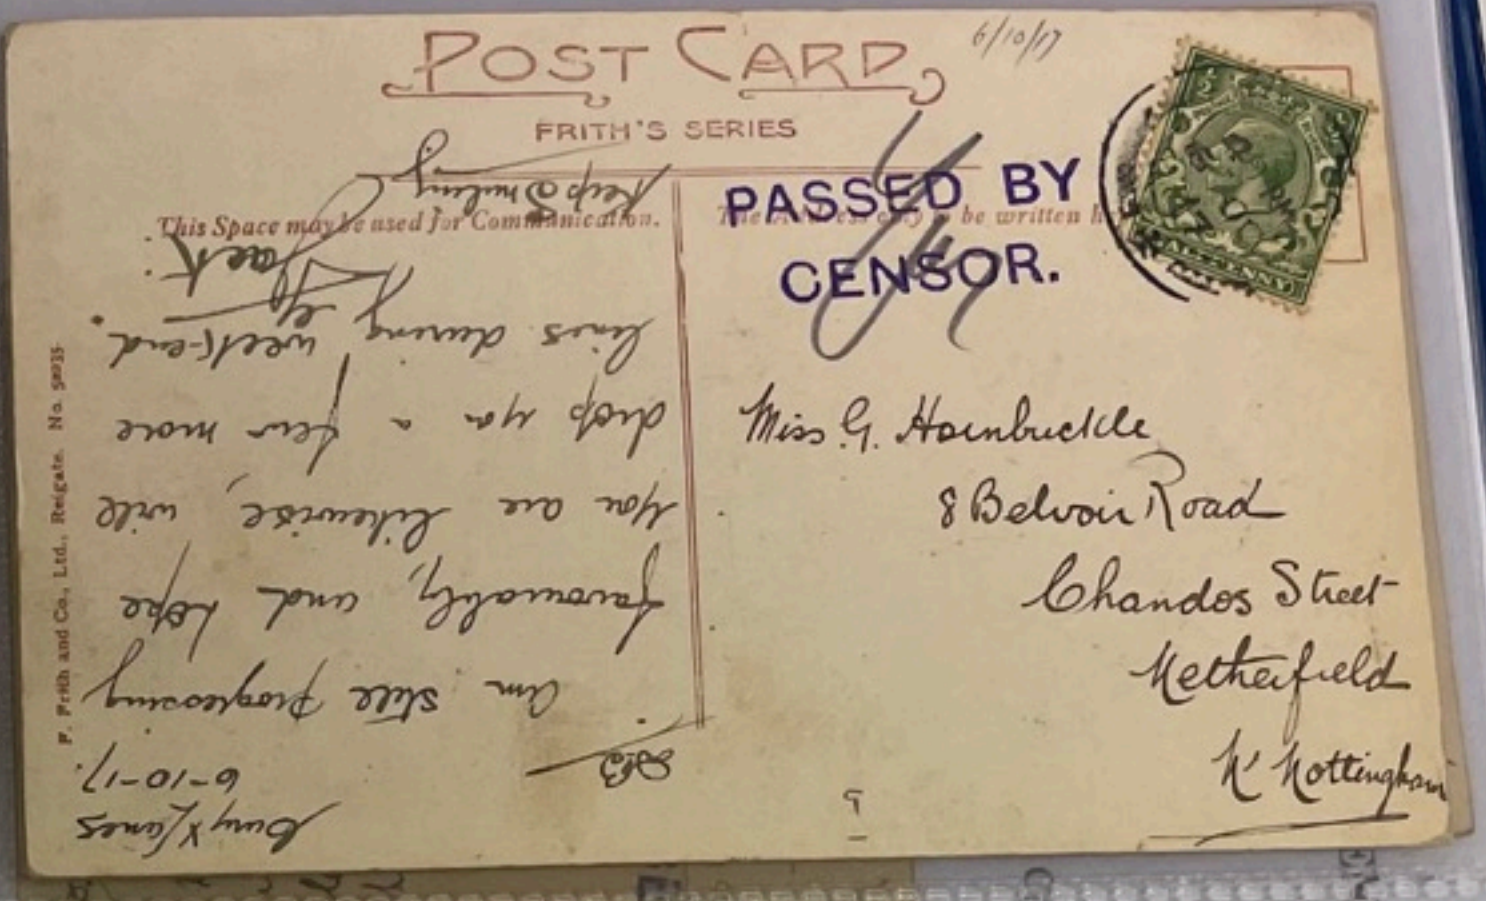 POST CARD
6/10/17
FRITH'S SERIES
This Space may be used for Communication.
The Address only to be written
PASSED BY
CENSOR.
HALFPENNY
Miss. G. Hornbuckle
8 Belvoir Road
Chandos Street
Netherfield
Nr Nottingham
F. Frith and Co., Ltd., Reigate. No. 58935
6-10-17.
Am still progressing
favourably, and hope
you are likewise, will
drop you a few more
lines during week-end.
Jack
Keep Smiling